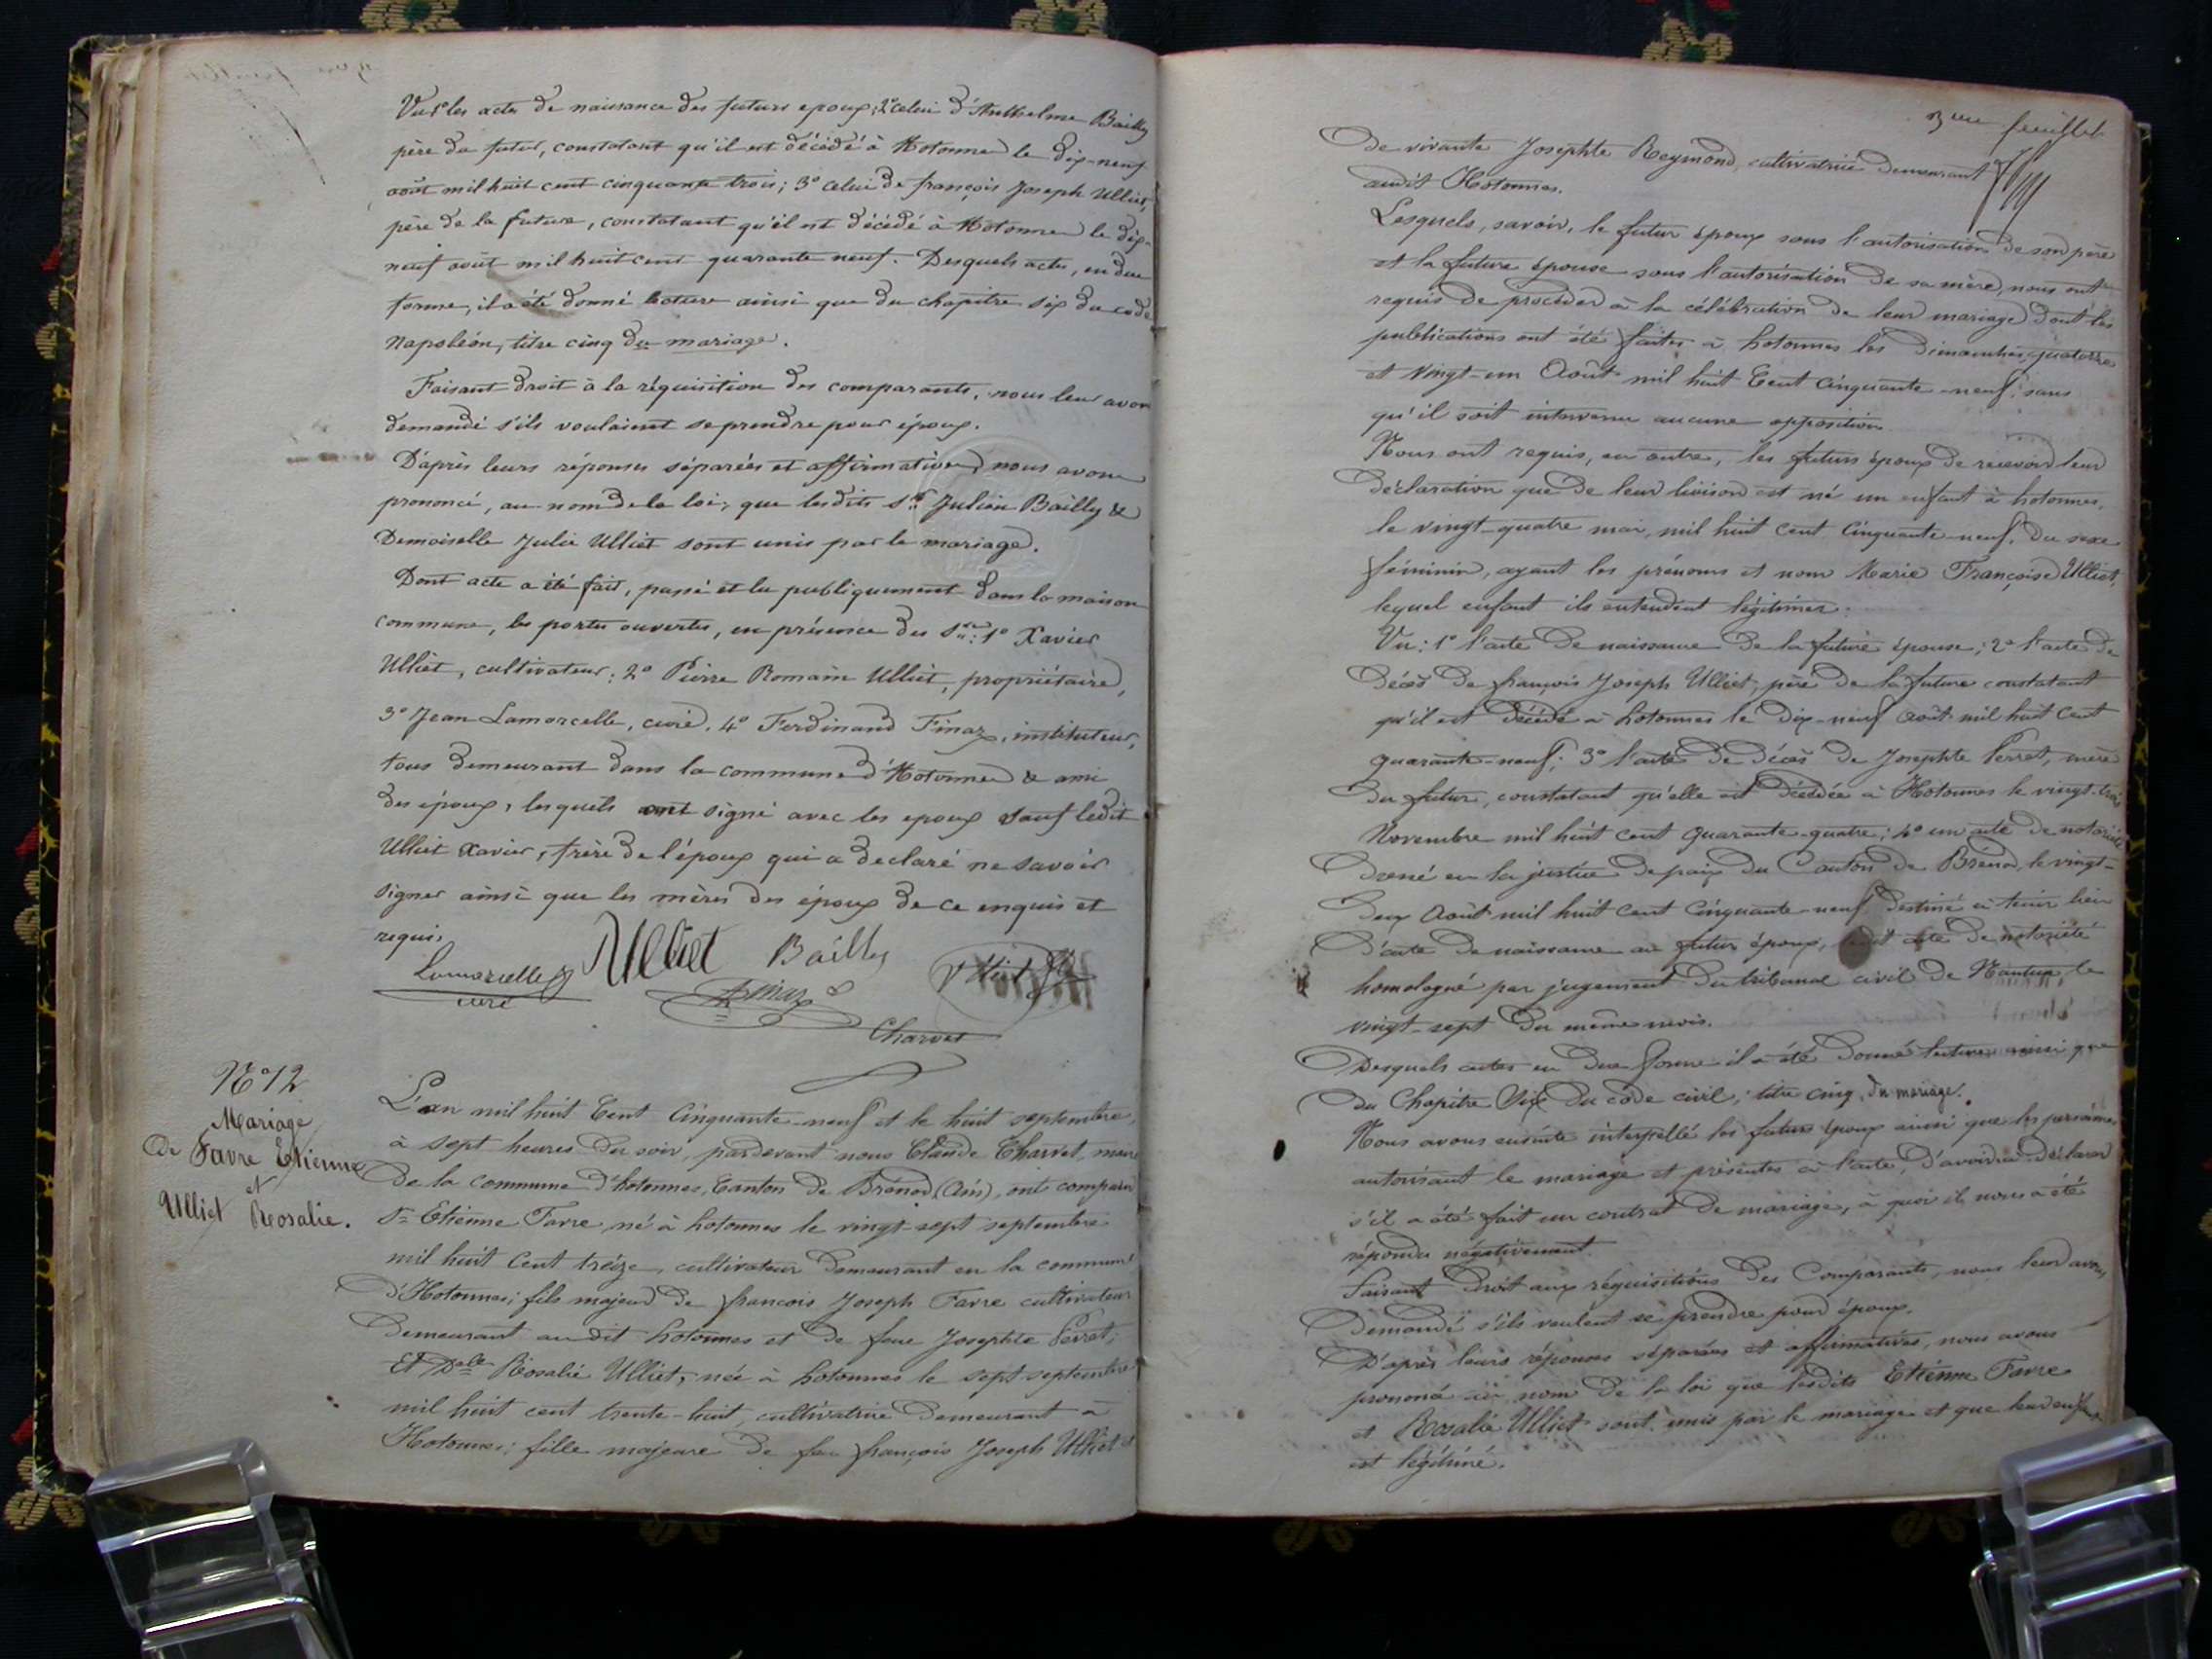 Vu 1° les actes de naissance des futurs epoux; 2° celui d'Anthelme Bailly
père du futur, constatant qu'il est décédé à Hotonnes le dix-neuf
août mil huit cent cinquante trois; 3° celui de françois Joseph Ulliet,
père de la future, constatant qu'il est décédé à Hotonnes le dix-
neuf août mil huit cent quarante neuf. Desquels actes, en due
forme, il a été donné lecture ainsi que du chapitre six du code
Napoléon, titre cinq du mariage.
Faisant droit à la réquisition des comparants, nous leur avons
demandé s'ils voulaient se prendre pour époux.
D'après leurs réponses séparées et affirmatives nous avons
prononcé, au nom de la loi, que lesdits Sr Julien Bailly &
Demoiselle Julie Ulliet sont unis par le mariage.
Dont acte a été fait, passé et lu publiquement dans la maison
commune, les portes ouvertes, en présence des Srs: 1° Xavier
Ulliet, cultivateur; 2° Pierre Romain Ulliet, propriétaire,
3° Jean Lamarcelle, curé, 4° Ferdinand Finaz, instituteur,
tous demeurant dans la commune d'Hotonnes & amis
des époux, lesquels ont signé avec les epoux sauf ledit
Ulliet Xavier, frère de l'époux qui a declaré ne savoir
signer ainsi que les mères des époux de ce enquis et
requis.
Lamarcelle curé
Ulliet
Bailly
Finaz
Charvet
N° 12
Mariage
de Favre Etienne
et
Ulliet Rosalie.
L'an mil huit Cent Cinquante-neuf et le huit septembre,
à sept heures du soir, pardevant nous Claude Charvet, maire
de la commune d'hotonnes, Canton de Brénod (Ain), ont comparu
Sr Etienne Favre né à hotonnes le vingt-sept septembre
mil huit Cent treize, cultivateur demeurant en la commune
d'Hotonnes; fils majeur de françois Joseph Favre cultivateur
demeurant au dit hotonnes et de feue Josephte Perret;
Et Delle Rosalie Ulliet, née à hotonnes le sept septembre
mil huit cent trente-huit, cultivatrice demeurant à
Hotonnes; fille majeure de feu françois Joseph Ulliet et
3me feuillet
de vivante Josephte Reymond, cultivatrice demeurant
audit Hotonnes.
Lesquels, savoir, le futur époux sous l'autorisation de son père
et la future épouse sous l'autorisation de sa mère, nous ont
requis de procéder à la célébration de leur mariage dont les
publications ont été faites à hotonnes les dimanches quatorze
et vingt-un Août mil huit Cent Cinquante-neuf, sans
qu'il soit intervenu aucune opposition.
Nous ont requis, en outre, les futurs époux de recevoir leur
déclaration que de leur liaison est né un enfant à hotonnes,
le vingt-quatre mai, mil huit Cent Cinquante-neuf, du sexe
féminin, ayant les prénoms et nom Marie Françoise Ulliet,
lequel enfant ils entendent légitimer.
Vu: 1° l'acte de naissance de la future épouse; 2° l'acte de
décès de françois Joseph Ulliet, père de la future constatant
qu'il est décédé à hotonnes le dix-neuf Août mil huit Cent
quarante-neuf; 3° l'acte de décès de Josephte Perret, mère
du futur, constatant qu'elle est décédée à Hotonnes le vingt-trois
Novembre mil huit cent quarante-quatre; 4° un acte de notoriété
dressé en la justice de paix du Canton de Brénod, le vingt-
deux Août mil huit cent Cinquante-neuf destiné à tenir lieu
d'acte de naissance au futur époux, ledit acte de notoriété
homologué par jugement du tribunal civil de Nantua, le
vingt-sept du même mois.
Desquels actes en due forme il a été donné lecture ainsi que
du Chapitre Six du code civil, titre cinq, du mariage.
Nous avons ensuite interpellé les futurs époux ainsi que les personnes
autorisant le mariage et présentes à l'acte, d'avoir à déclarer
s'il a été fait un contrat de mariage, à quoi il nous a été
répondu négativement.
Faisant droit aux réquisitions des Comparants, nous leur avons
demandé s'ils veulent se prendre pour époux.
D'après leurs réponses séparées et affirmatives, nous avons
prononcé au nom de la loi que lesdits Etienne Favre
et Rosalie Ulliet sont unis par le mariage et que leur enfant
est légitimé.